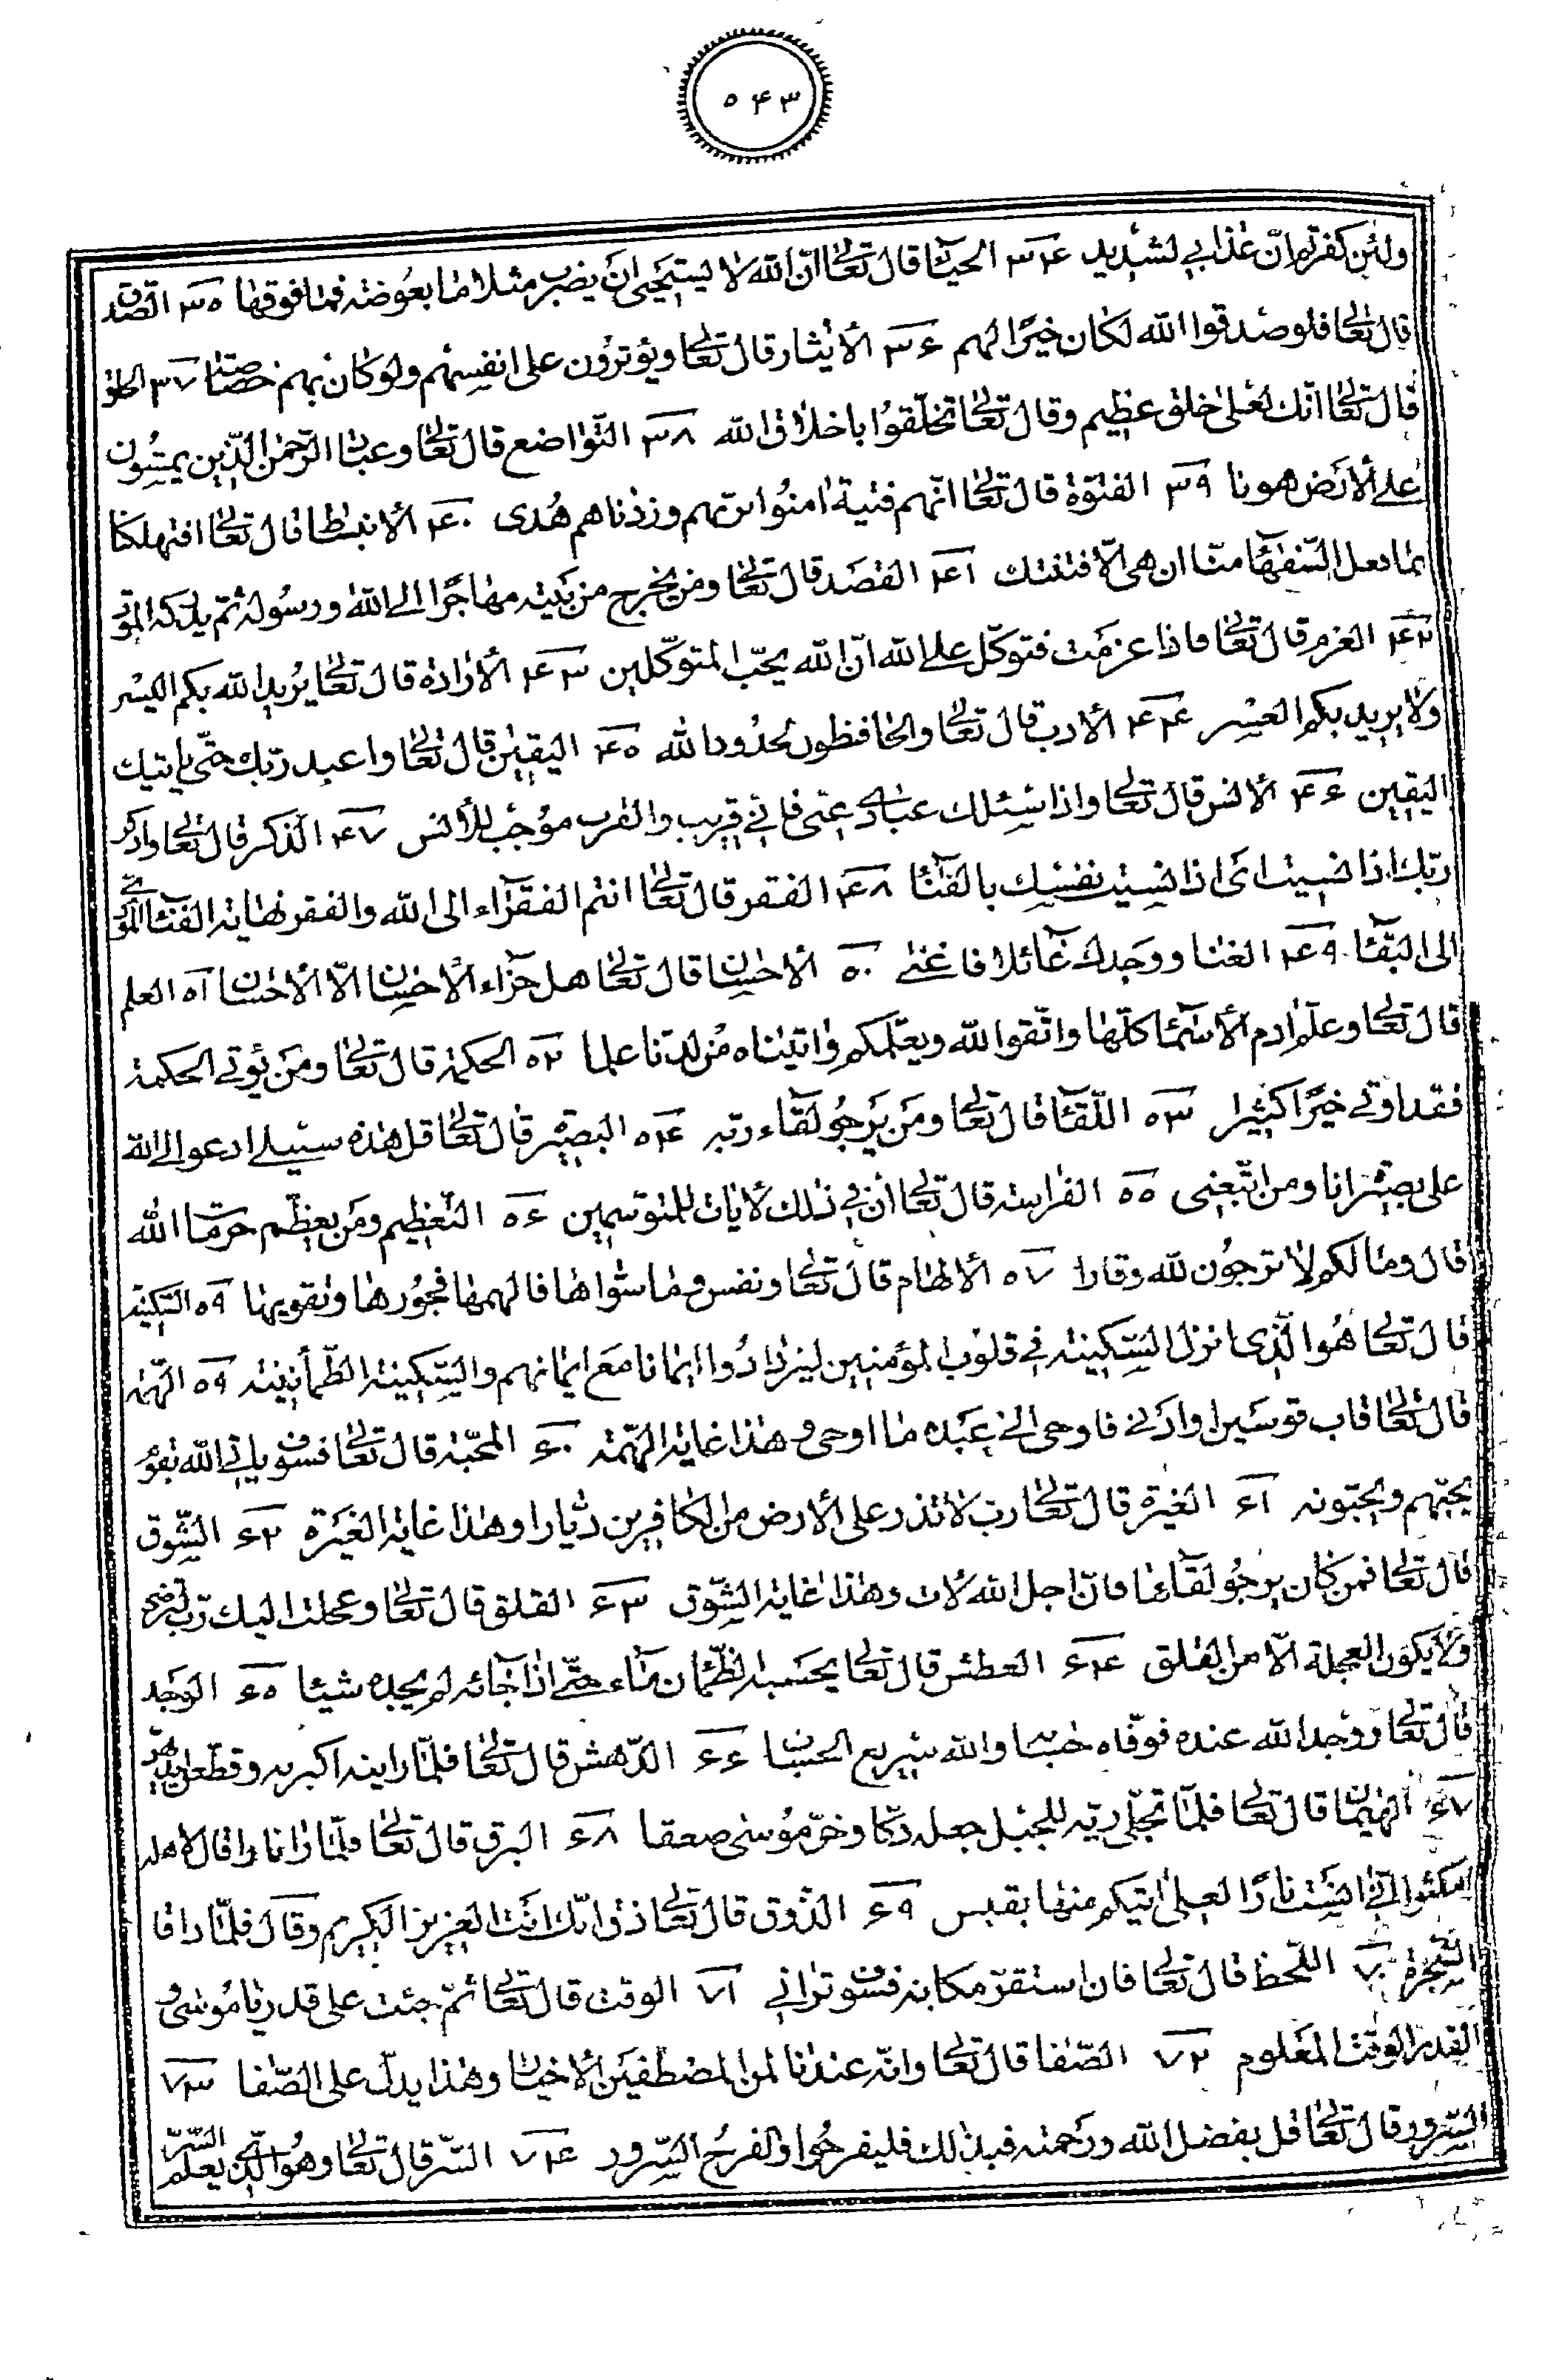 ۵۴۳
ولئن كفرتم انّ عذابي لشديد ۳۴ الحياء قال تعالى انّ الله لا يستحيى ان يضرب مثلا ما بعوضة فما فوقها ۳۵ الصّدق
قال تعالى فلو صدقوا الله لكان خيرًا لهم ۳۶ الأيثار قال تعالى ويؤثرون على انفسهم ولو كان بهم خصاصة ۳۷ الخلق
قال تعالى انّك لعلى خلق عظيم وقال تعالى تخلّقوا باخلاق الله ۳۸ التّواضع قال تعالى وعباد الرّحمن الّذين يمشون
على ألأرض هونا ۳۹ الفتوّة قال تعالى انّهم فتية امنوا بربّهم وزدناهم هدى ۴۰ ألانبساط قال تعالى افتهلكنا
بما فعل السّفهاء منّا ان هى الّا فتنتك ۴۱ القصد قال تعالى ومن يخرج من بيته مهاجرًا الى الله ورسوله ثمّ يدركه الموت
۴۲ العزم قال تعالى فاذا عزمت فتوكّل على الله انّ الله يحبّ المتوكّلين ۴۳ ألارادة قال تعالى يريد الله بكم اليسر
ولا يريد بكم العسر ۴۴ ألادب قال تعالى والحافظون لحدود الله ۴۵ اليقين قال تعالى واعبد ربّك حتّى ياتيك
اليقين ۴۶ ألانس قال تعالى واذا سئلك عبادى عنّى فانّي قريب والقرب موجب للأنس ۴۷ الذّكر قال تعالى واذكر
ربّك اذا نسيت اى اذا نسيت نفسك بالفناء ۴۸ الفقر قال تعالى انتم الفقراء الى الله والفقر نهاية الفناء
الى البقاء ۴۹ الغنا ووجدك عائلا فاغنى ۵۰ ألاحسان قال تعالى هل جزاء ألاحسان الّا ألاحسان ۵۱ العلم
قال تعالى وعلّم ادم ألاسماء كلّها واتّقوا الله ويعلّمكم واتيناه من لدنّا علما ۵۲ الحكمة قال تعالى ومن يؤتى الحكمة
فقد اوتى خيرًا كثيرا ۵۳ اللّقاء قال تعالى ومن يرجو لقاء ربّه ۵۴ البصيرة قال تعالى قل هذه سبيلى ادعوا الى الله
على بصيرة انا ومن اتّبعنى ۵۵ الفراسة قال تعالى أن في ذلك لأيات للمتوسّمين ۵۶ التّعظيم ومن يعظّم حرمات الله
قال وما لكم لا ترجون لله وقارا ۵۷ ألالهام قال تعالى ونفس وما سوّاها فالهمها فجورها وتقويها ۵۹ السّكينة
قال تعالى هو الّذى انزل السّكينة في قلوب المؤمنين ليزدادوا ايمانا مع ايمانهم والسّكينة الطّمأنينة ۵۹ الهمّة
قال تعالى قاب قوسين او ادنى فاوحى الى عبده ما اوحى وهذا غاية الهمّة ۶۰ المحبّة قال تعالى فسوف ياتي الله بقوم
يحبّهم ويحبّونه ۶۱ الغيرة قال تعالى رب لا تذر على ألارض من الكافرين ديّارا وهذا غاية الغيرة ۶۲ الشّوق
قال تعالى فمن كان يرجو لقاءنا فانّ اجل الله لات وهذا غاية الشّوق ۶۳ القلق قال تعالى وعجلت اليك ربّ لترضى
ولا يكون العجلة الّا من القلق ۶۴ العطش قال تعالى يحسبه الظّمان ماء حتّى اذا جائه لم يجده شيئا ۶۵ الوجد
قال تعالى ووجد الله عنده فوفّاه حسابه والله سريع الحساب ۶۶ الدّهش قال تعالى فلمّا راينه اكبرنه وقطّعن ايديهنّ
۶۷ الهيمان قال تعالى فلمّا تجلّى ربّه للجبل جعله دكّا وخرّ موسى صعقا ۶۸ البرق قال تعالى فلمّا راى نارا قال لأهله
امكثوا انّي انست نارًا لعلى اتيكم منها بقبس ۶۹ الذّوق قال تعالى ذق انّك انت العزيز الكريم وقال فلمّا ذاقا
الشّجرة ۷۰ اللّحظ قال تعالى فان استقرّ مكانه فسوف تراني ۷۱ الوقت قال تعالى ثمّ جئت على قدر يا موسى و
القدر الوقت المعلوم ۷۲ الصّفا قال تعالى وانّه عندنا لمن المصطفين ألاخيار وهذا يدلّ على الصّفا ۷۳
السّرور قال تعالى قل بفضل الله ورحمته فبذلك فليفرحوا والفرح السّرور ۷۴ السّر قال تعالى وهو الّذى يعلم السّرّ